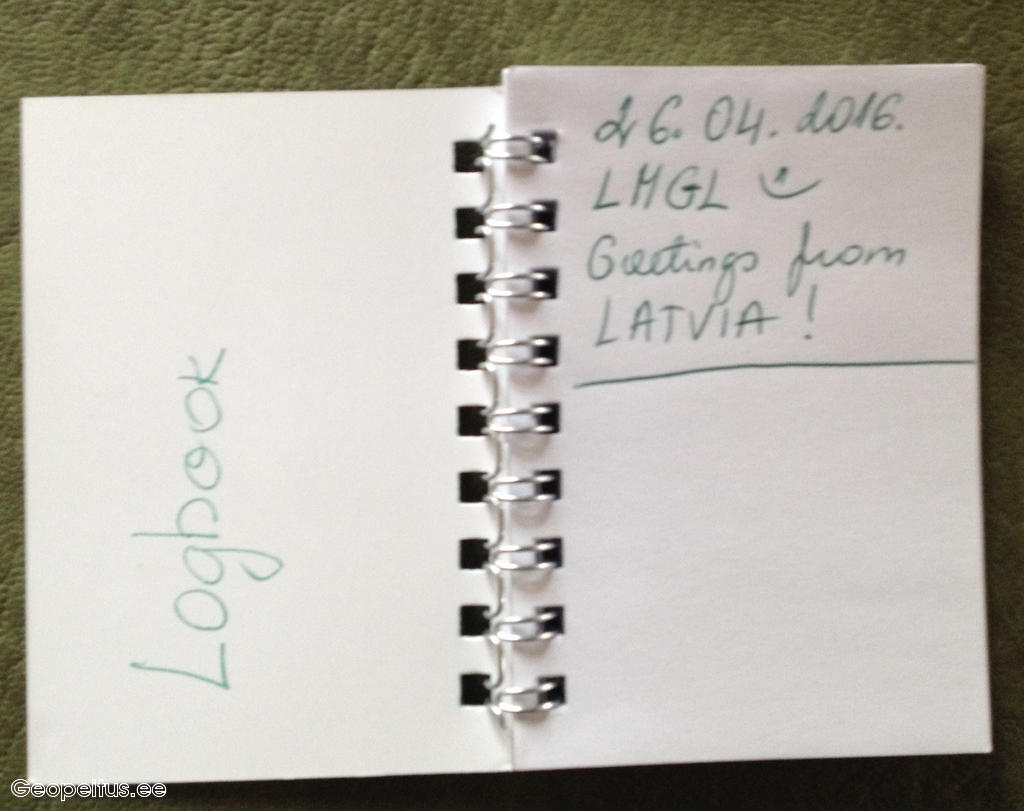 Logbook
26. 04. 2016.
LMGL
Greetings from
LATVIA !
Geopeitus.ee